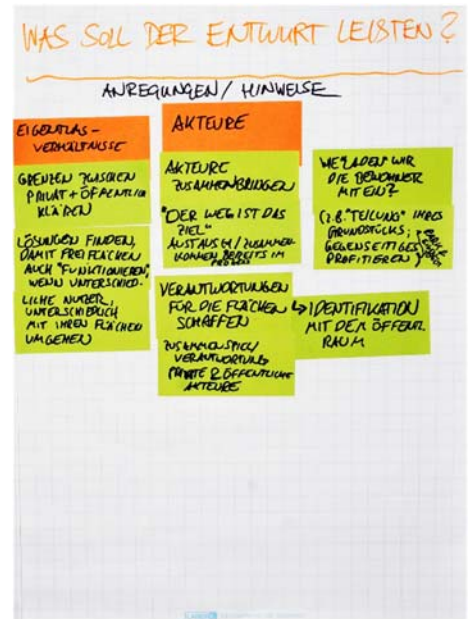 WAS SOLL DER ENTWURF LEISTEN?
ANREGUNGEN / HINWEISE
EIGENTUMS-
VERHÄLTNISSE
GRENZEN ZWISCHEN
PRIVAT + ÖFFENTLICH
KLÄREN
LÖSUNGEN FINDEN,
DAMIT FREIFLÄCHEN
AUCH "FUNKTIONIEREN",
WENN UNTERSCHIED-
LICHE NUTZER,
UNTERSCHIEDLICH
MIT IHREN FLÄCHEN
UMGEHEN
AKTEURE
AKTEURE
ZUSAMMENBRINGEN
"DER WEG IST DAS
ZIEL"
AUSTAUSCH / ZUSAMMEN-
KOMMEN BEREITS IM
PROZESS
VERANTWORTUNGEN
FÜR DIE FLÄCHEN
SCHAFFEN
ZUSAMMENSPIEL /
VERANTWORTUNG
PRIVATE & ÖFFENTLICHE
AKTEURE
WIE LADEN WIR
DIE BEWOHNER
MIT EIN?
(z.B. "TEILUNG" IHRES
GRUNDSTÜCKS;
GEGENSEITIGES
PROFITIEREN)
↳ IDENTIFIKATION
MIT DEM ÖFFENTL.
RAUM